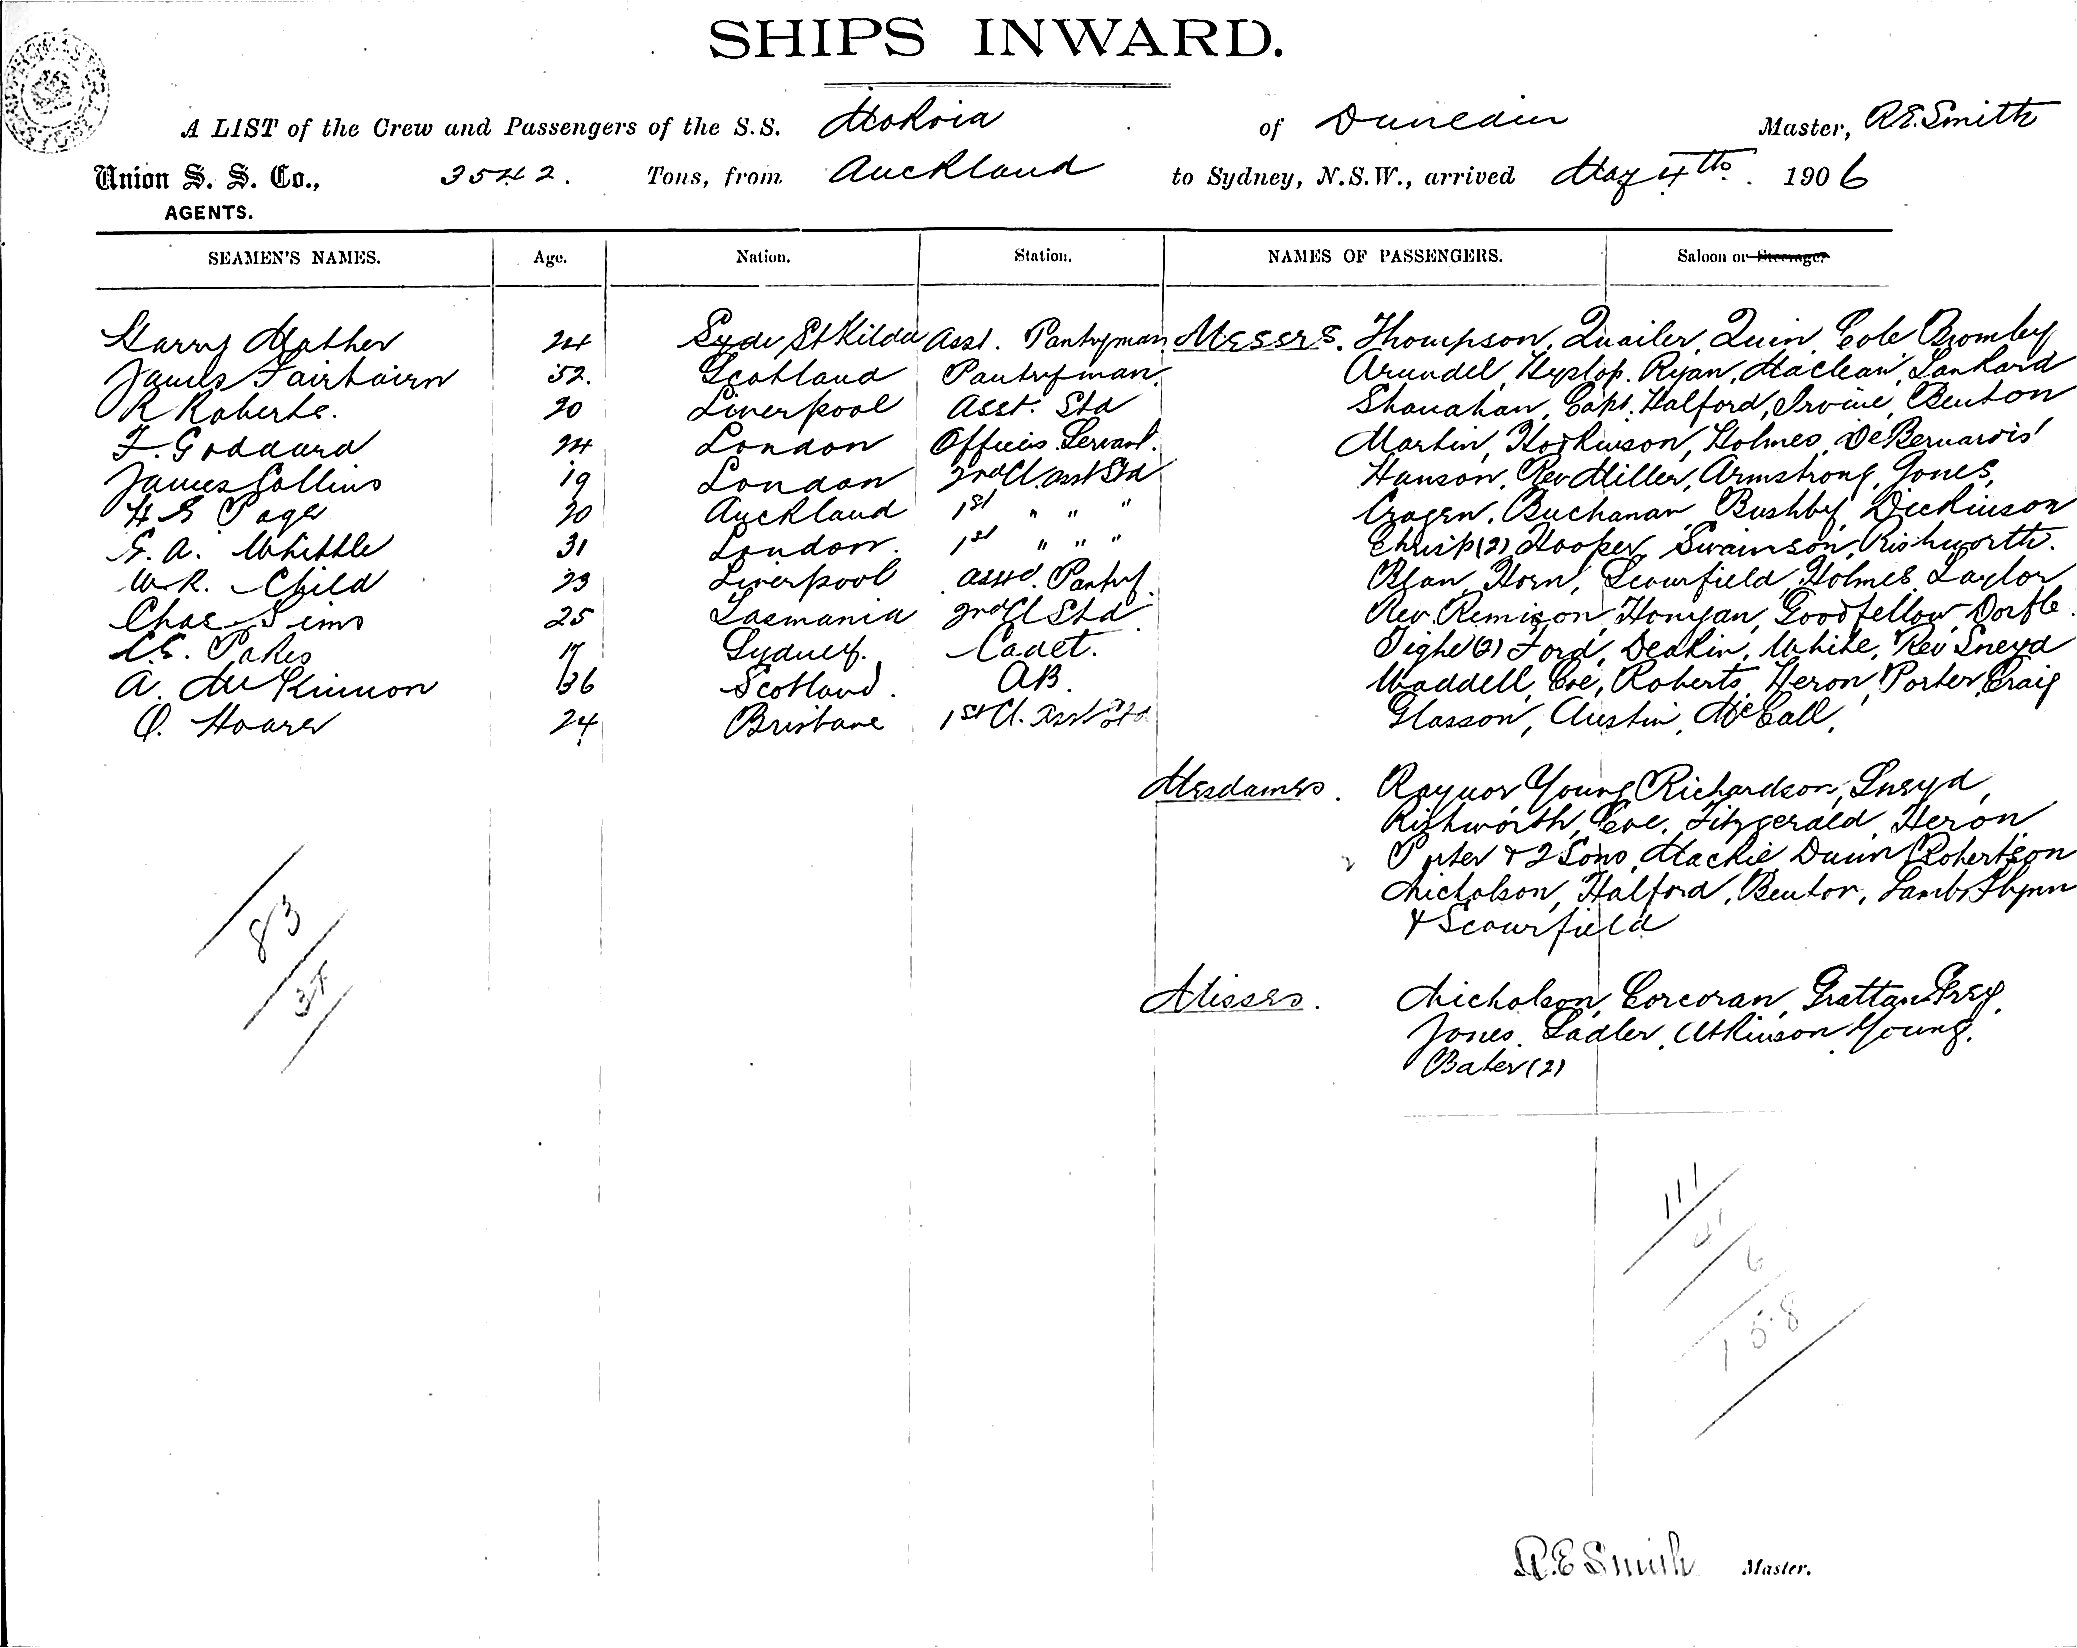 SHIPS INWARD.
A LIST of the Crew and Passengers of the S.S. Mokoia of Dunedin Master, R.E. Smith
Union S. S. Co., 3542. Tons, from Auckland to Sydney, N.S.W., arrived May 4th. 1906
AGENTS.
SEAMEN'S NAMES. Age. Nation. Station. NAMES OF PASSENGERS. Saloon or Steerage.
Harry Mather 24 St Kilda Asst. Pantryman Messrs. Thompson, Quailer, Quin, Cole Bromley
James Fairbairn 52. Scotland Pantryman. Arundel, Hyslop. Ryan, Maclean, Lankard
R Roberts. 20 Liverpool Asst. Std Shanahan, Capt. Halford, Irvine, Benton
F. Goddard 24 London Officers Servant. Martin, Hodkinson, Holmes, De Bernardis
James Collins 19 London 2nd Cl. asst Std Hanson, Rev Miller, Armstrong, Jones,
H E Page 20 Auckland 1st " " " Cragen, Buchanan, Bushby, Dickinson
G. A. Whittle 31 London. 1st " " " Chrisp (2) Hooper, Swainson, Rishworth.
W. R. Child 23 Liverpool asst. Pantry. Horn, Scourfield, Holmes, Taylor
Chas Sims 25 Tasmania 2nd Cl Std Rev. Remison, Honyan, Goodfellow, Dorfle.
C.E. Pakes 17 Sydney. Cadet. Tighe (2) Ford, Deakin, White, Rev Sneyd
A. McKinnon 36 Scotland. AB. Waddell, Coe, Roberts, Heron, Porter, Craig
O. Hoare 24 Brisbane 1st Cl. Asst Std Glasson, Austin, McCall,
Mesdames. Raynor, Young, Richardson, Sneyd,
Rishworth, Coe, Fitzgerald, Heron
Porter & 2 Sons, Mackie, Dunn, Robertson
Nicholson, Halford, Benton, Lamb, Flynn
& Scourfield
Misses. Nicholson, Corcoran, Grattan Grey,
Jones, Sadler, Atkinson, Young,
Bater (2)
83
37
111
6
158
R.E Smith Master.